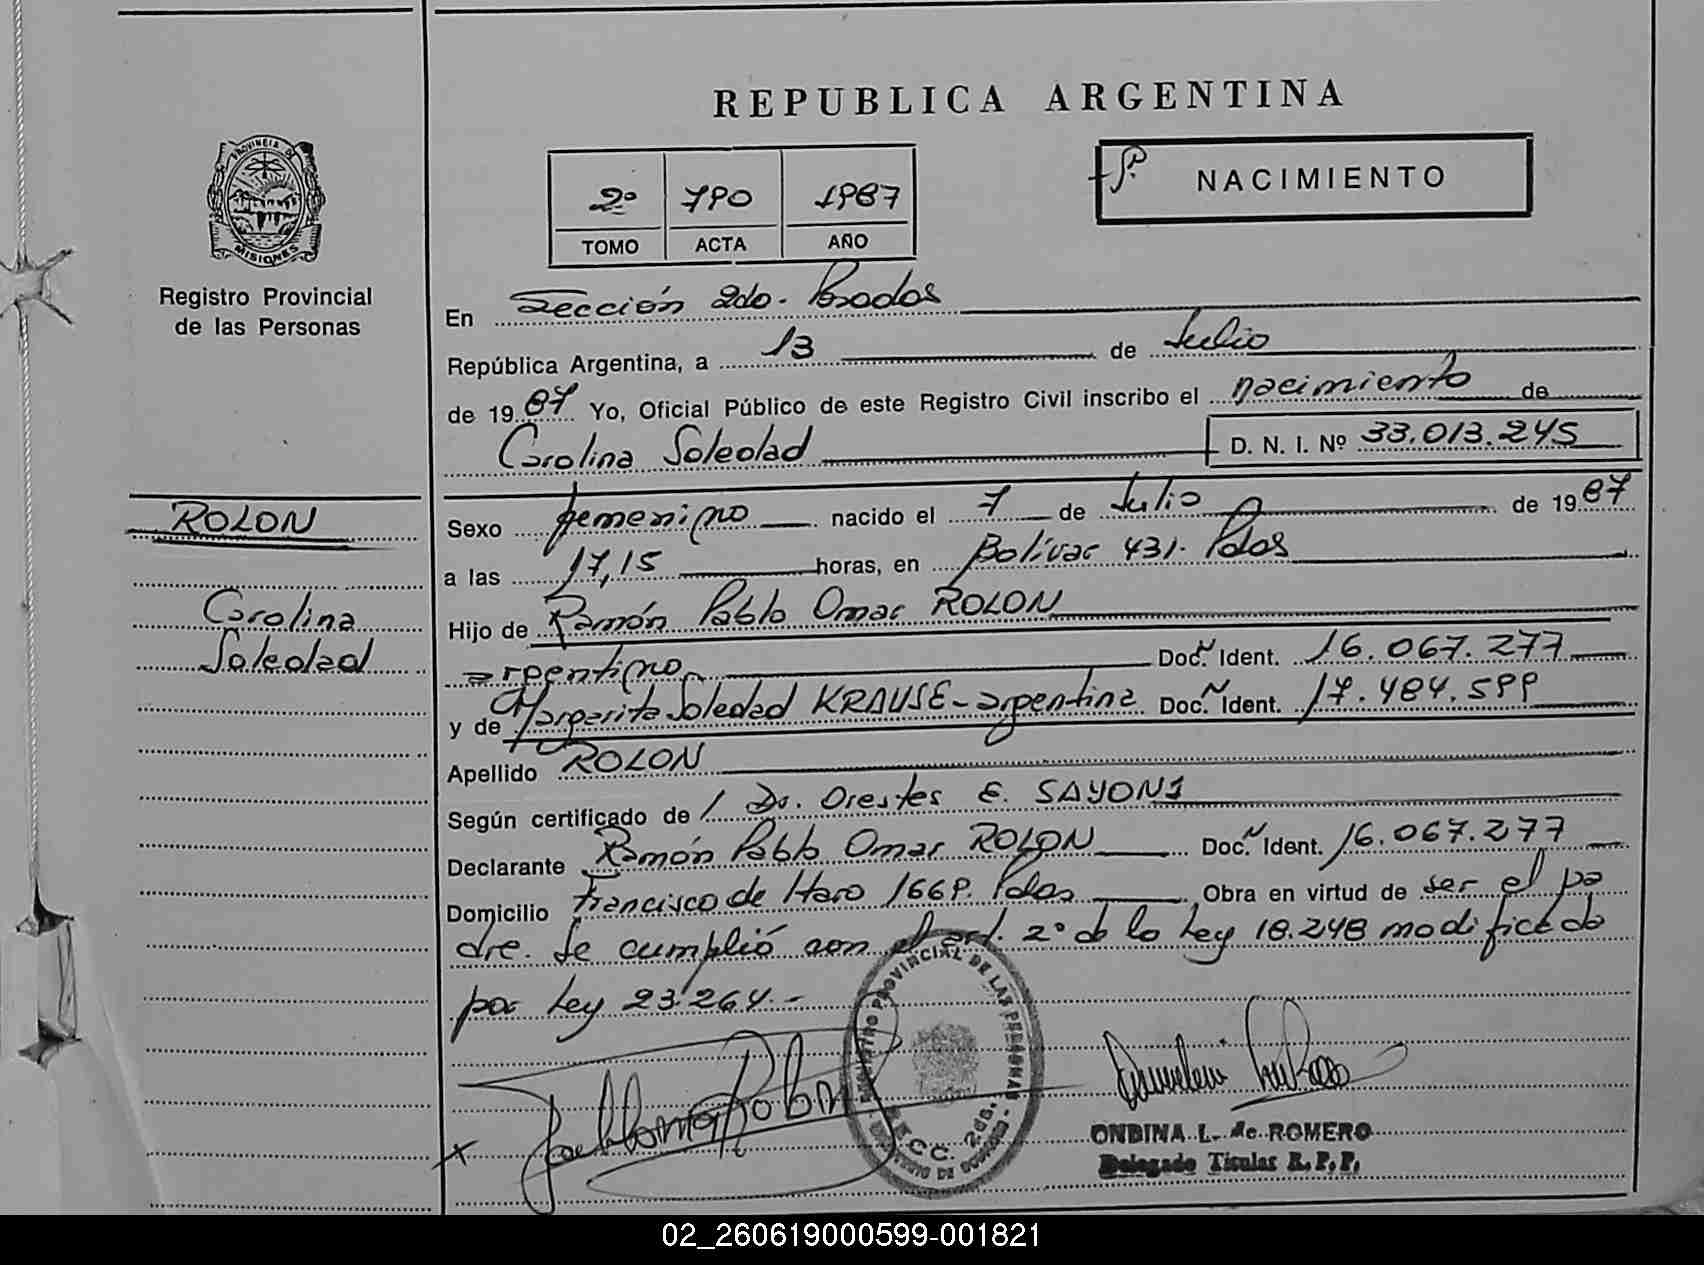 REPUBLICA ARGENTINA
PROVINCIA DE MISIONES
Registro Provincial
de las Personas
2º 790 1987
TOMO ACTA AÑO
NACIMIENTO
En Sección 2do. Posadas
República Argentina, a 13 de Julio
de 1987 Yo, Oficial Público de este Registro Civil inscribo el nacimiento de
Carolina Soledad D. N. I. Nº 33.013.245
ROLON
Carolina
Soledad
Sexo femenino nacido el 7 de Julio de 1987
a las 17,15 horas, en Bolívar 431. Pdas
Hijo de Ramón Pablo Omar ROLON
argentino Doc. Ident. 16.067.277
y de Margarita Soledad KRAUSE - argentina Doc. Ident. 17.484.599
Apellido ROLON
Según certificado de / Dr. Orestes E. SAYONS
Declarante Ramón Pablo Omar ROLON Doc. Ident. 16.067.277
Domicilio Francisco de Haro 1669. Pdas Obra en virtud de ser el pa
dre. Se cumplió con el art. 2º de la Ley 18.248 modificado
por Ley 23.264.-
REGISTRO PROVINCIAL DE LAS PERSONAS
ONDINA L. de ROMERO
Delegado Titular R.P.P.
02_260619000599-001821